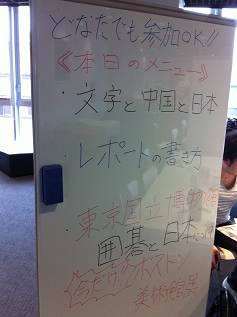 どなたでも参加OK!!
《本日のメニュー》
・文字と中国と日本
・レポートの書き方
・東京国立博物館
囲碁と日本
今だけ!!ボストン
美術館展